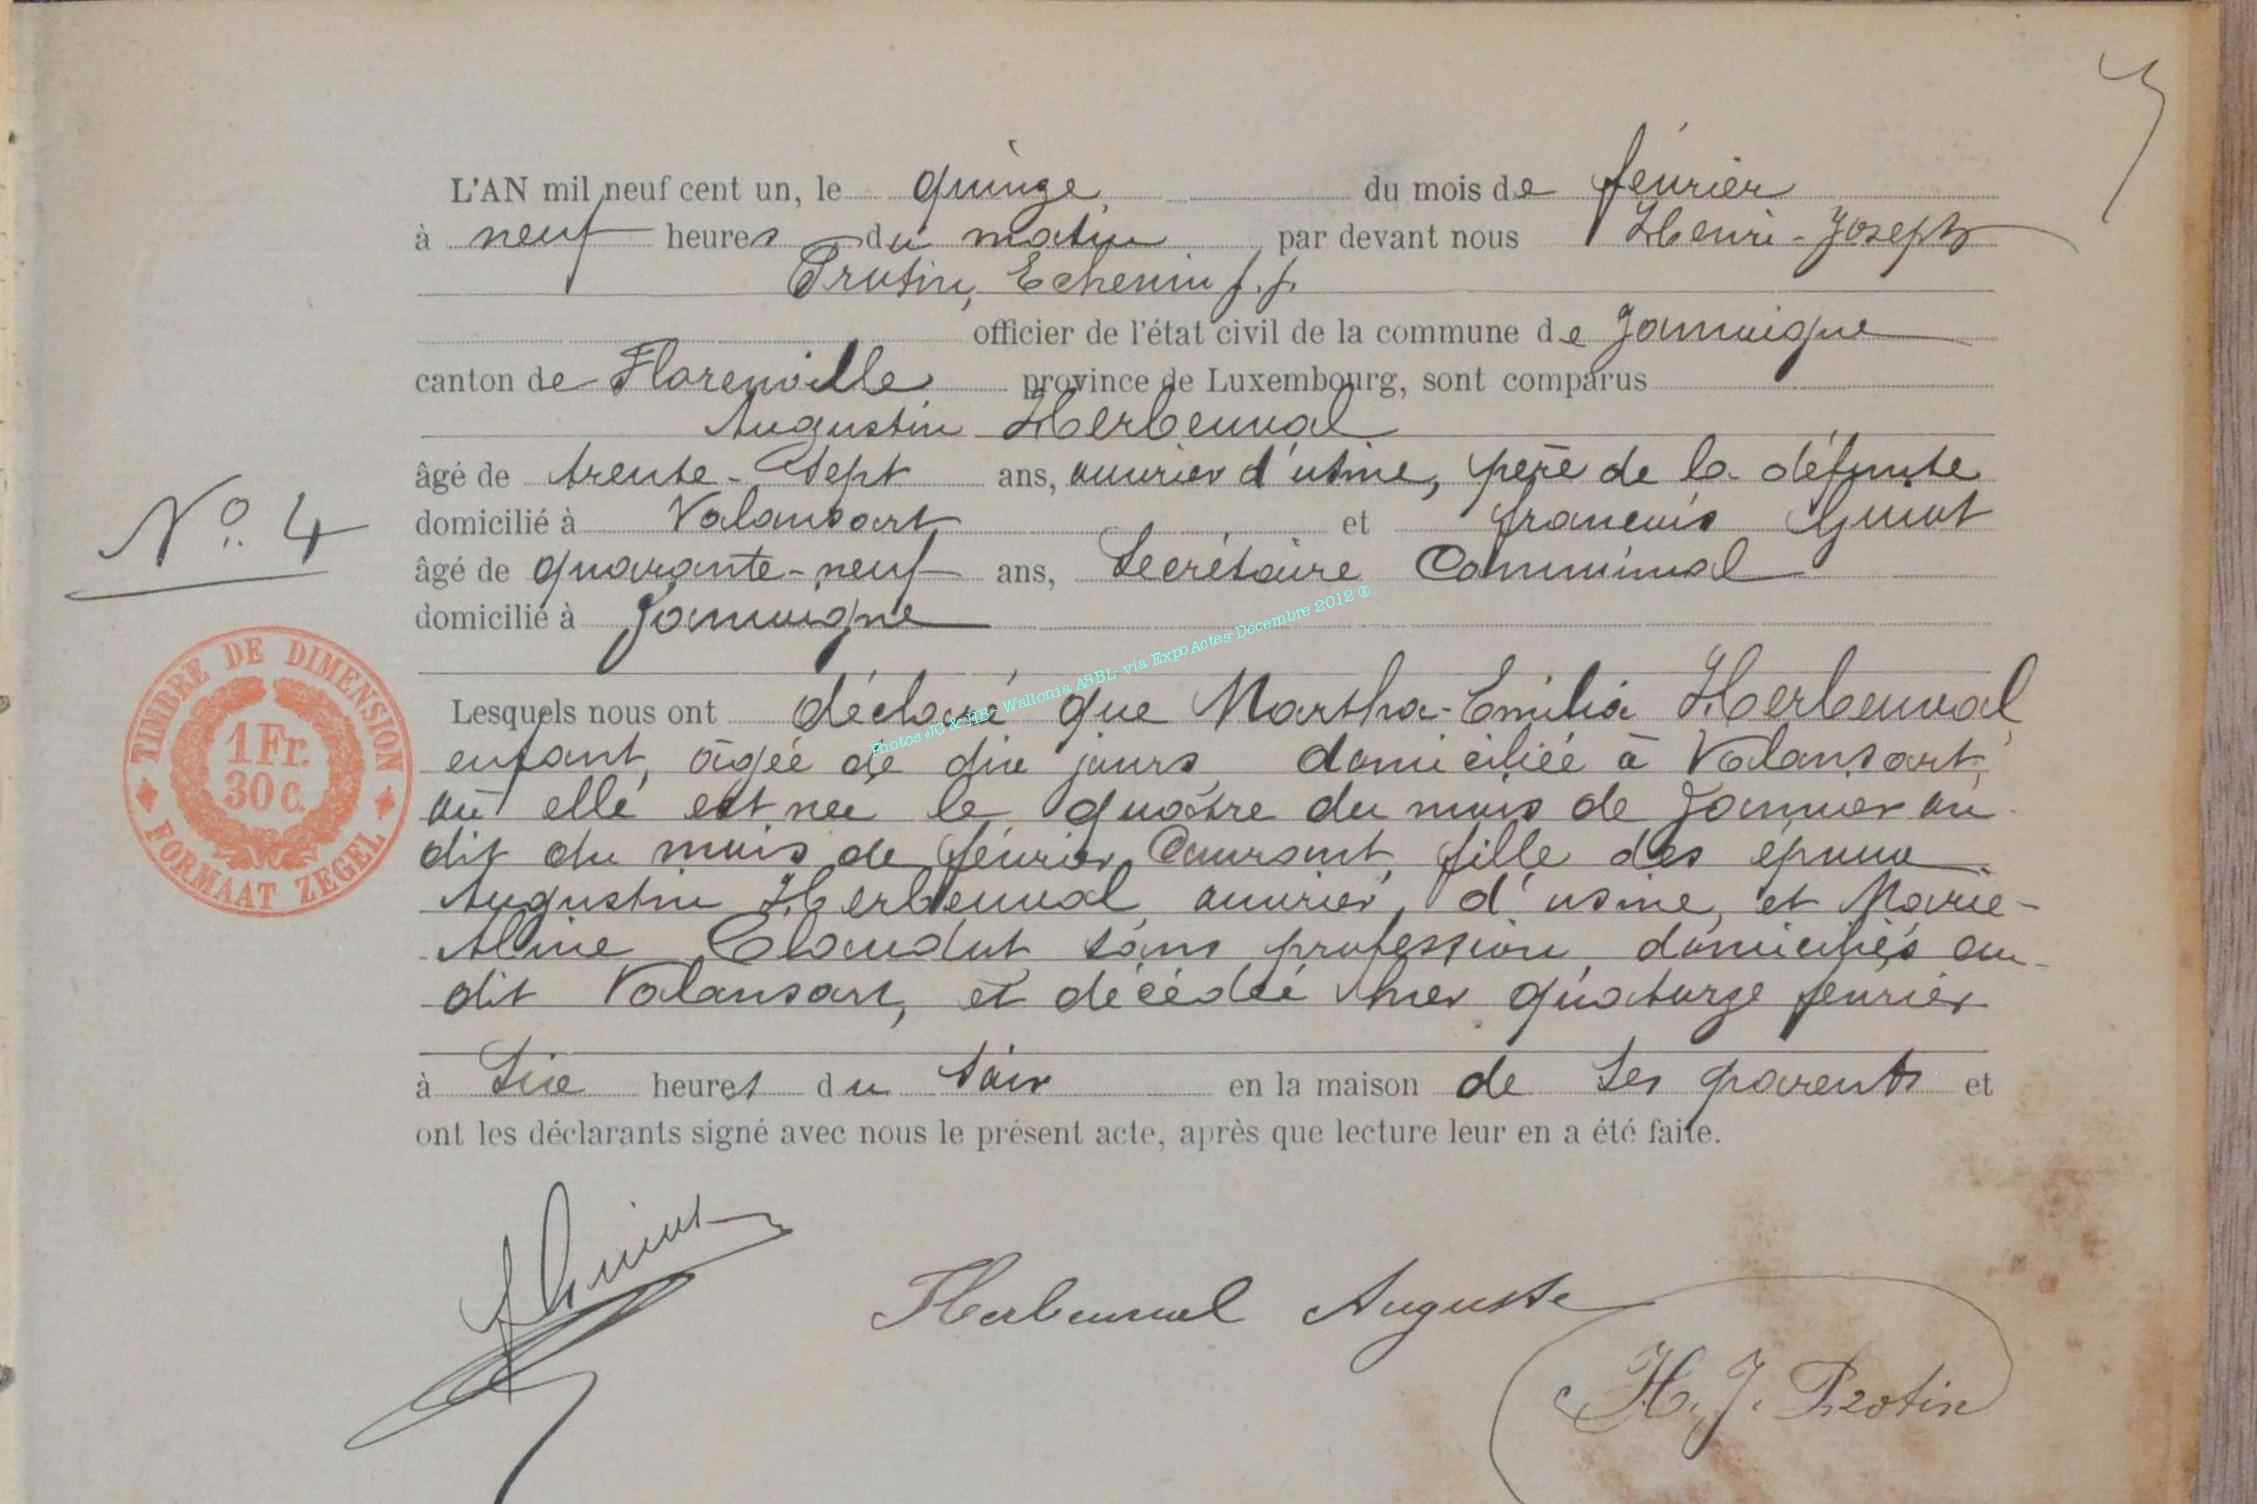 L'AN mil neuf cent un, le quinze du mois de février
à neuf heures du matin par devant nous Henri-Joseph
Protin, Echevin f.f.
officier de l'état civil de la commune de Jamoigne
canton de Florenville province de Luxembourg, sont comparus
Augustin Herbeuval
âgé de trente-sept ans, ouvrier d'usine, père de la défunte
N° 4
domicilié à Valansart et François Guiot
âgé de quarante-neuf ans, Secrétaire Communal
domicilié à Jamoigne
Lesquels nous ont déclaré que Martha-Emilia Herbeuval,
enfant, âgée de dix jours, domiciliée à Valansart,
où elle est née le quatre du mois de Janvier au
dit du mois de février Courant, fille des époux
Augustin Herbeuval, ouvrier d'usine, et Marie-
Aline Claudot sans profession, domiciliés au-
dit Valansart, et décédée hier quatorze février
à Six heures du soir en la maison de Ses parents et
ont les déclarants signé avec nous le présent acte, après que lecture leur en a été faite.
TIMBRE DE DIMENSION
1 Fr.
30 c.
FORMAAT ZEGEL
Photos JC & HB - Wallonia ASBL- via ExpoActes-Décembre 2012 ®
Herbeuval Auguste
H. J. Protin